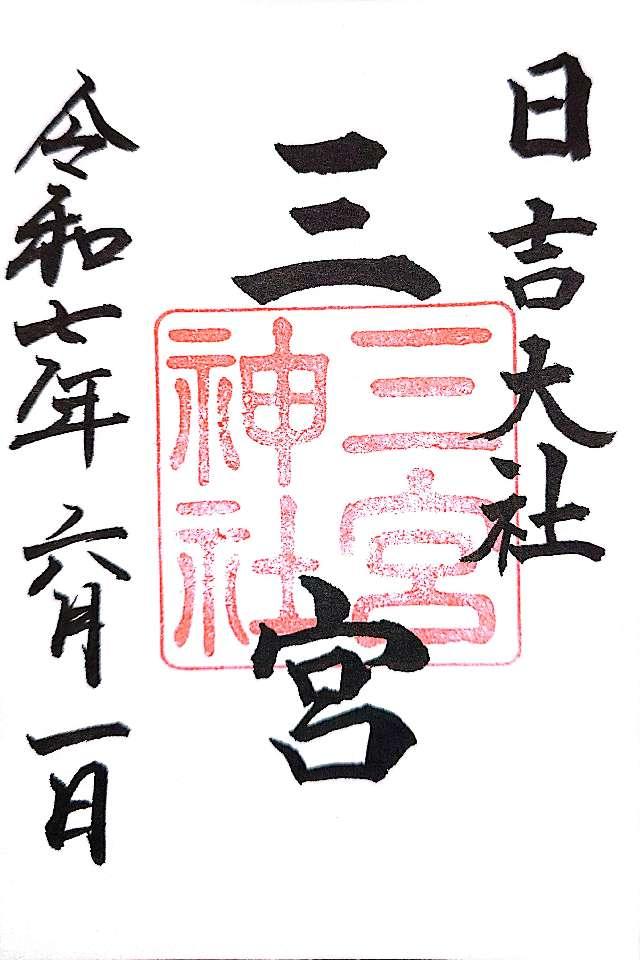 日吉大社
三宮
三宮
神社
令和七年 六月一日